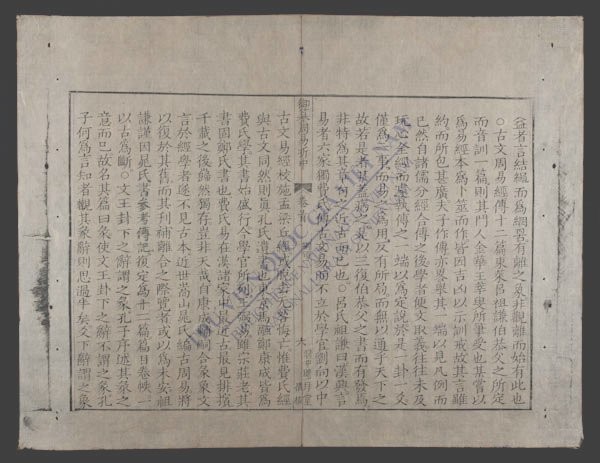 益者言結繩而為網罟有離之象非觀離而始有此也
○古文周易經傳十二篇東萊呂祖謙伯恭父之所定
而音訓一篇則其門人金華王莘叟所筆受也某嘗以
為易經本為卜筮而作皆因吉凶以示訓戒故其言雖
約而所包甚廣夫子作傳亦略舉其一端以見凡例而
已然自諸儒分經合傳之後學者便文取義往往未及
玩心全經而遽執傳之一端以為定說於是一卦一爻
僅為一事而易之為用反有所局而無以通乎天下之
故若是者某蓋病之是以三復伯恭父之書而有發焉
非特為其章句之近古而已也○呂氏祖謙曰漢興言
易者六家獨費氏傳古文易而不立於學官劉向以中
御纂周易折中 卷首
古文易經校施孟梁丘經或脫去无咎悔亡惟費氏經
與古文同然則真孔氏遺書也東京馬融鄭康成皆為
費氏學其書始盛行今學官所列王弼易雖宗莊老其
書固鄭氏書也費氏易在漢諸家中最近古最見排擯
千載之後巋然獨存豈非天哉自康成輔嗣合彖象文
言於經學者遂不見古本近世嵩山晁氏編古周易將
以復於其舊而其刊補離合之際覽者或以為未安祖
謙謹因晁氏書參考傳記復定為十二篇篇目卷帙一
以古為斷○文王卦下之辭謂之彖孔子序述其彖之
意而已故名其篇曰彖使文王卦下之辭不謂之彖孔
子何為言知者觀其彖辭則思過半矣爻下辭謂之象